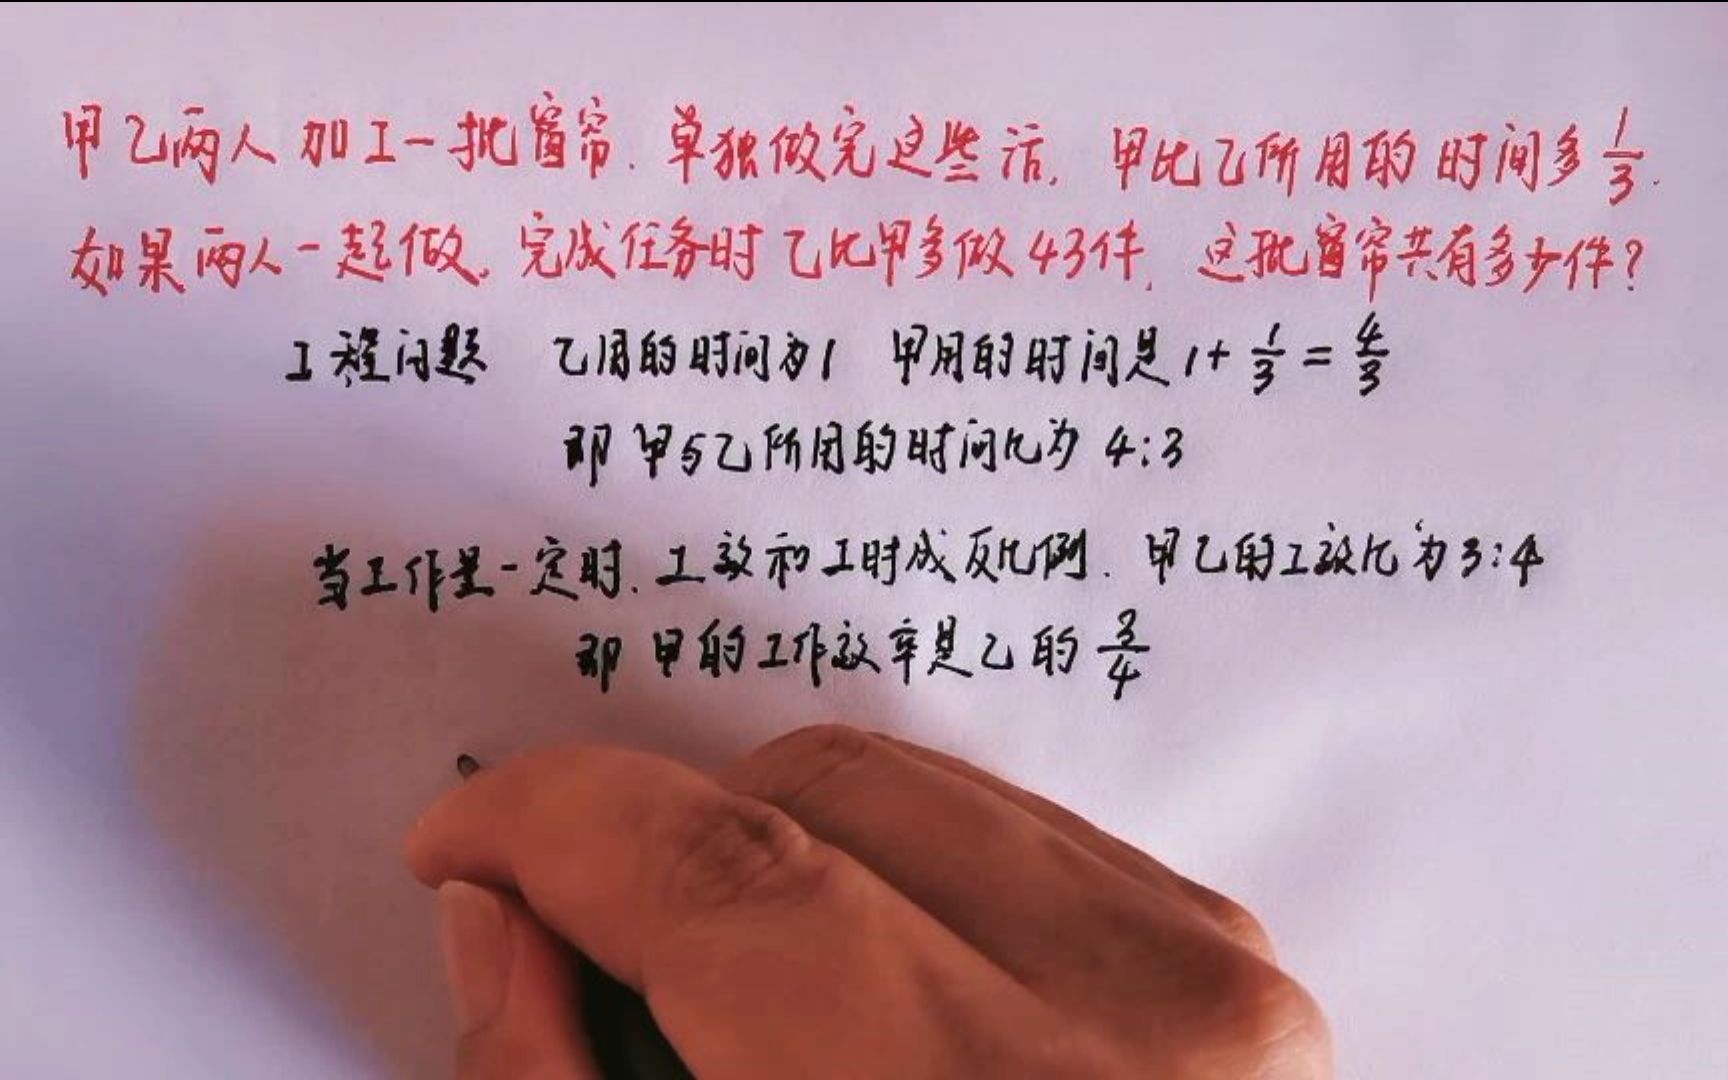 甲乙两人加工一批窗帘.单独做完这些活,甲比乙所用的时间多1/3.
如果两人一起做,完成任务时乙比甲多做43件,这批窗帘共有多少件?
工程问题 乙用的时间为1 甲用的时间是1+1/3=4/3
即甲与乙所用的时间比为4:3
当工作量一定时.工效和工时成反比例.甲乙的工效比为3:4
即甲的工作效率是乙的3/4